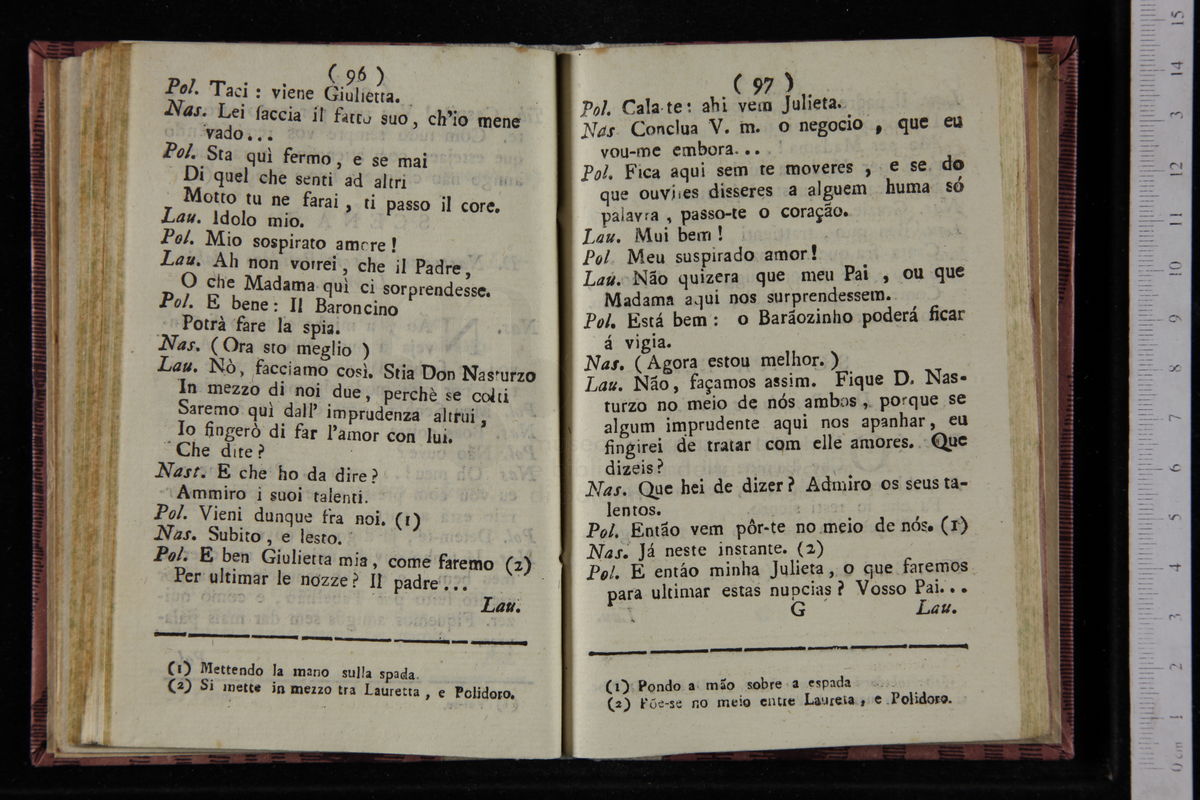 ( 96 )
Pol. Taci : viene Giulietta.
Nas. Lei faccia il fatto suo, ch'io mene
vado...
Pol. Sta quì fermo, e se mai
Di quel che senti ad altri
Motto tu ne farai, ti passo il core.
Lau. Idolo mio.
Pol. Mio sospirato amore!
Lau. Ah non vorrei, che il Padre,
O che Madama quì ci sorprendesse.
Pol. E bene: Il Baroncino
Potrà fare la spia.
Nas. (Ora sto meglio )
Lau. Nò, facciamo così. Stia Don Nasturzo
In mezzo di noi due, perchè se colti
Saremo quì dall' imprudenza altrui,
Io fingerò di far l'amor con lui.
Che dite?
Nast. E che ho da dire?
Ammiro i suoi talenti.
Pol. Vieni dunque fra noi. (1)
Nas. Subito, e lesto.
Pol. E ben Giulietta mia, come faremo (2)
Per ultimar le nozze? Il padre...
Lau.
(1) Mettendo la mano sulla spada.
(2) Si mette in mezzo tra Lauretta, e Polidoro.
( 97 )
Pol. Cala-te: ahi vem Julieta.
Nas Conclua V. m. o negocio, que eu
vou-me embora...
Pol. Fica aqui sem te moveres, e se do
que ouvires disseres a alguem huma só
palavra, passo-te o coração.
Lau. Mui bem!
Pol Meu suspirado amor!
Lau. Não quizera que meu Pai, ou que
Madama aqui nos surprendessem.
Pol. Está bem: o Barãozinho poderá ficar
á vigia.
Nas. (Agora estou melhor.)
Lau. Não, façamos assim. Fique D. Nas-
turzo no meio de nós ambos, porque se
algum imprudente aqui nos apanhar, eu
fingirei de tratar com elle amores. Que
dizeis?
Nas. Que hei de dizer? Admiro os seus ta-
lentos.
Pol. Então vem pôr-te no meio de nós. (1)
Nas. Já neste instante. (2)
Pol. E então minha Julieta, o que faremos
para ultimar estas nupcias? Vosso Pai...
G Lau.
(1) Pondo a mão sobre a espada
(2) Põe-se no meio entre Laureta, e Polidoro.
15
14
13
12
11
10
9
8
7
6
5
4
3
2
1
0 cm